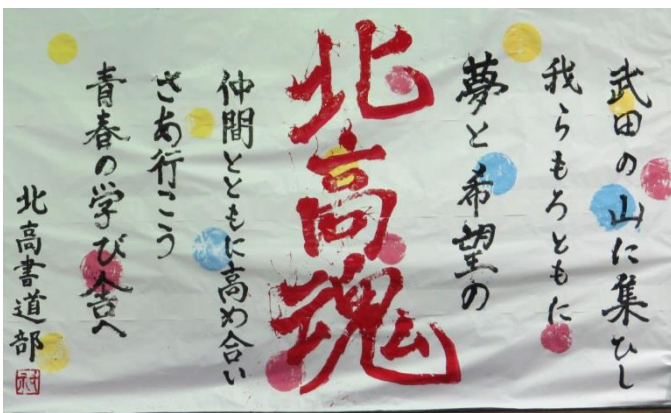 武田の山に集ひし
我らもろともに
夢と希望の
北高魂
仲間とともに高め合い
さあ行こう
青春の学び舎へ
北高書道部